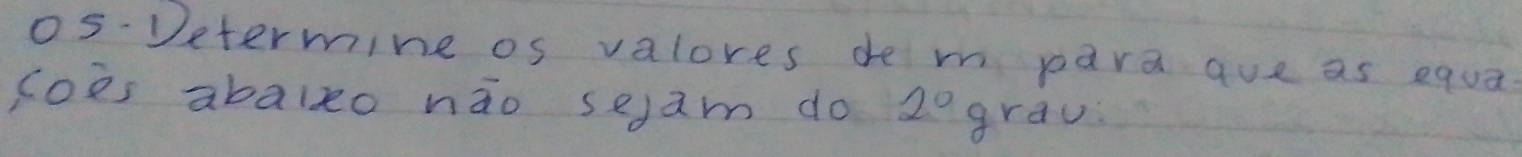 05-Determine os valores de m para que as equa-
ções abaixo não sejam do 2º grau: